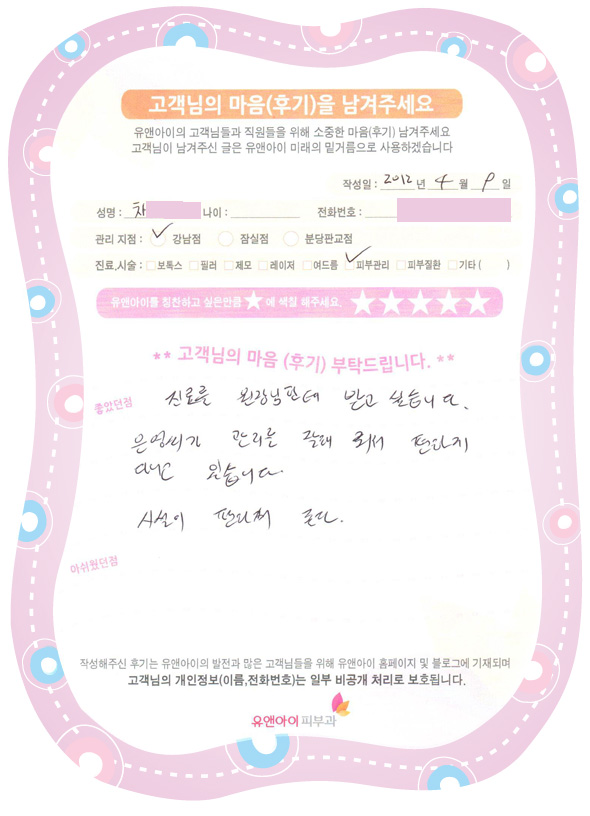 고객님의 마음(후기)을 남겨주세요
유앤아이의 고객님들과 직원들을 위해 소중한 마음(후기) 남겨주세요
고객님이 남겨주신 글은 유앤아이 미래의 밑거름으로 사용하겠습니다
작성일 : 2012 년 4 월 9 일
성명 : 차 나이 : 전화번호 :
관리 지점 : 강남점 잠실점 분당판교점
진료,시술 : 보톡스 필러 제모 레이저 여드름 피부관리 피부질환 기타 ( )
유앤아이를 칭찬하고 싶은만큼 ★ 에 색칠 해주세요. ★★★★★
** 고객님의 마음 (후기) 부탁드립니다. **
좋았던점
진료를 원장님한테 받고 싶습니다.
은영씨가 관리를 잘해 줘서
시설이 좋다.
아쉬웠던점
작성해주신 후기는 유앤아이의 발전과 많은 고객님들을 위해 유앤아이 홈페이지 및 블로그에 기재되며
고객님의 개인정보(이름,전화번호)는 일부 비공개 처리로 보호됩니다.
유앤아이 피부과